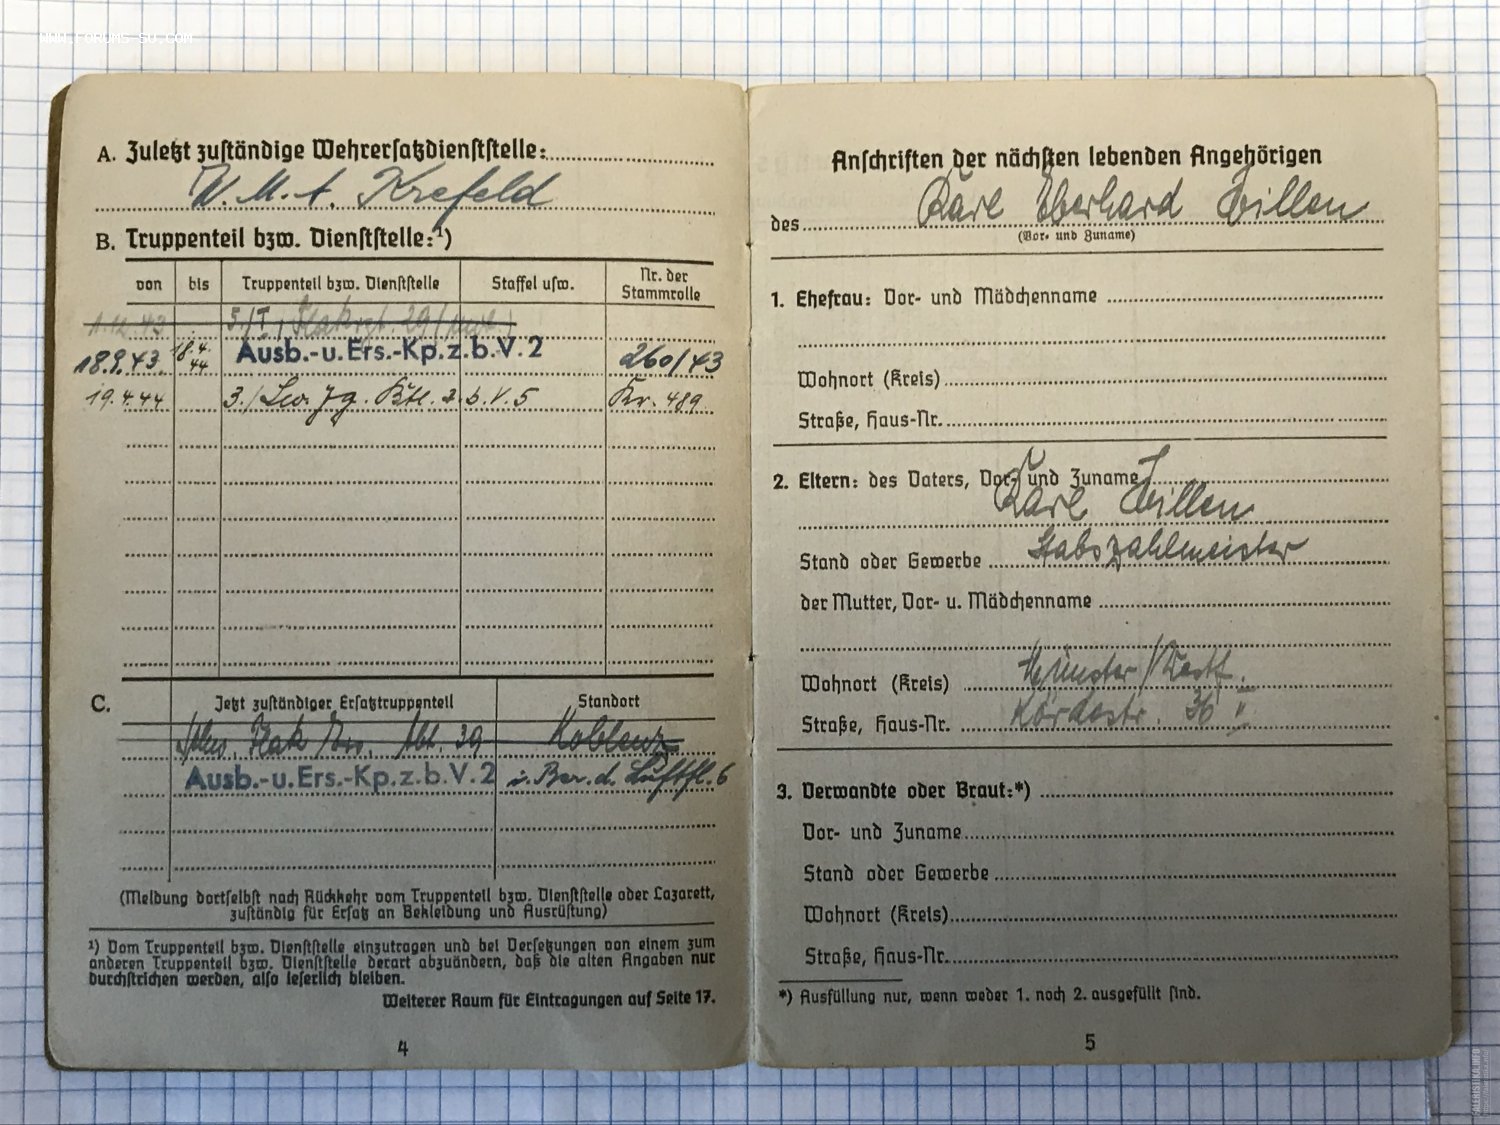 WWW.FORUMS-SU.COM
A. Zuletzt zuständige Wehrersatzdienststelle:
W. M. A. Krefeld
B. Truppenteil bzw. Dienststelle:¹)
von bis Truppenteil bzw. Dienststelle Staffel usw. Nr. der Stammrolle
1.12.43 5./I. Flakrgt. 29 (mot.)
18.9.43. 18.4.44 Ausb.-u.Ers.-Kp.z.b.V.2 260/43
19.4.44 3./Lw. Jg. Kdo. z.b.V.5 Kr. 489
C. Jetzt zuständiger Ersatztruppenteil Standort
Flak Ers. Abt. 39 Koblenz
Ausb.-u.Ers.-Kp.z.b.V.2 i. Ber. d. Luftfl. 6
(Meldung dortselbst nach Rückkehr vom Truppenteil bzw. Dienststelle oder Lazarett,
zuständig für Ersatz an Bekleidung und Ausrüstung)
¹) Vom Truppenteil bzw. Dienststelle einzutragen und bei Versetzungen von einem zum
anderen Truppenteil bzw. Dienststelle derart abzuändern, daß die alten Angaben nur
durchstrichen werden, also leserlich bleiben.
Weiterer Raum für Eintragungen auf Seite 17.
4
Anschriften der nächsten lebenden Angehörigen
des Karl Eberhard Zillen
(Vor- und Zuname)
1. Ehefrau: Vor- und Mädchenname
Wohnort (Kreis)
Straße, Haus-Nr.
2. Eltern: des Vaters, Vor- und Zuname
Karl Zillen
Stand oder Gewerbe Stabszahlmeister
der Mutter, Vor- u. Mädchenname
Wohnort (Kreis) Münster / Westf.
Straße, Haus-Nr. 36 II
3. Verwandte oder Braut:*)
Vor- und Zuname
Stand oder Gewerbe
Wohnort (Kreis)
Straße, Haus-Nr.
*) Ausfüllung nur, wenn weder 1. noch 2. ausgefüllt sind.
5